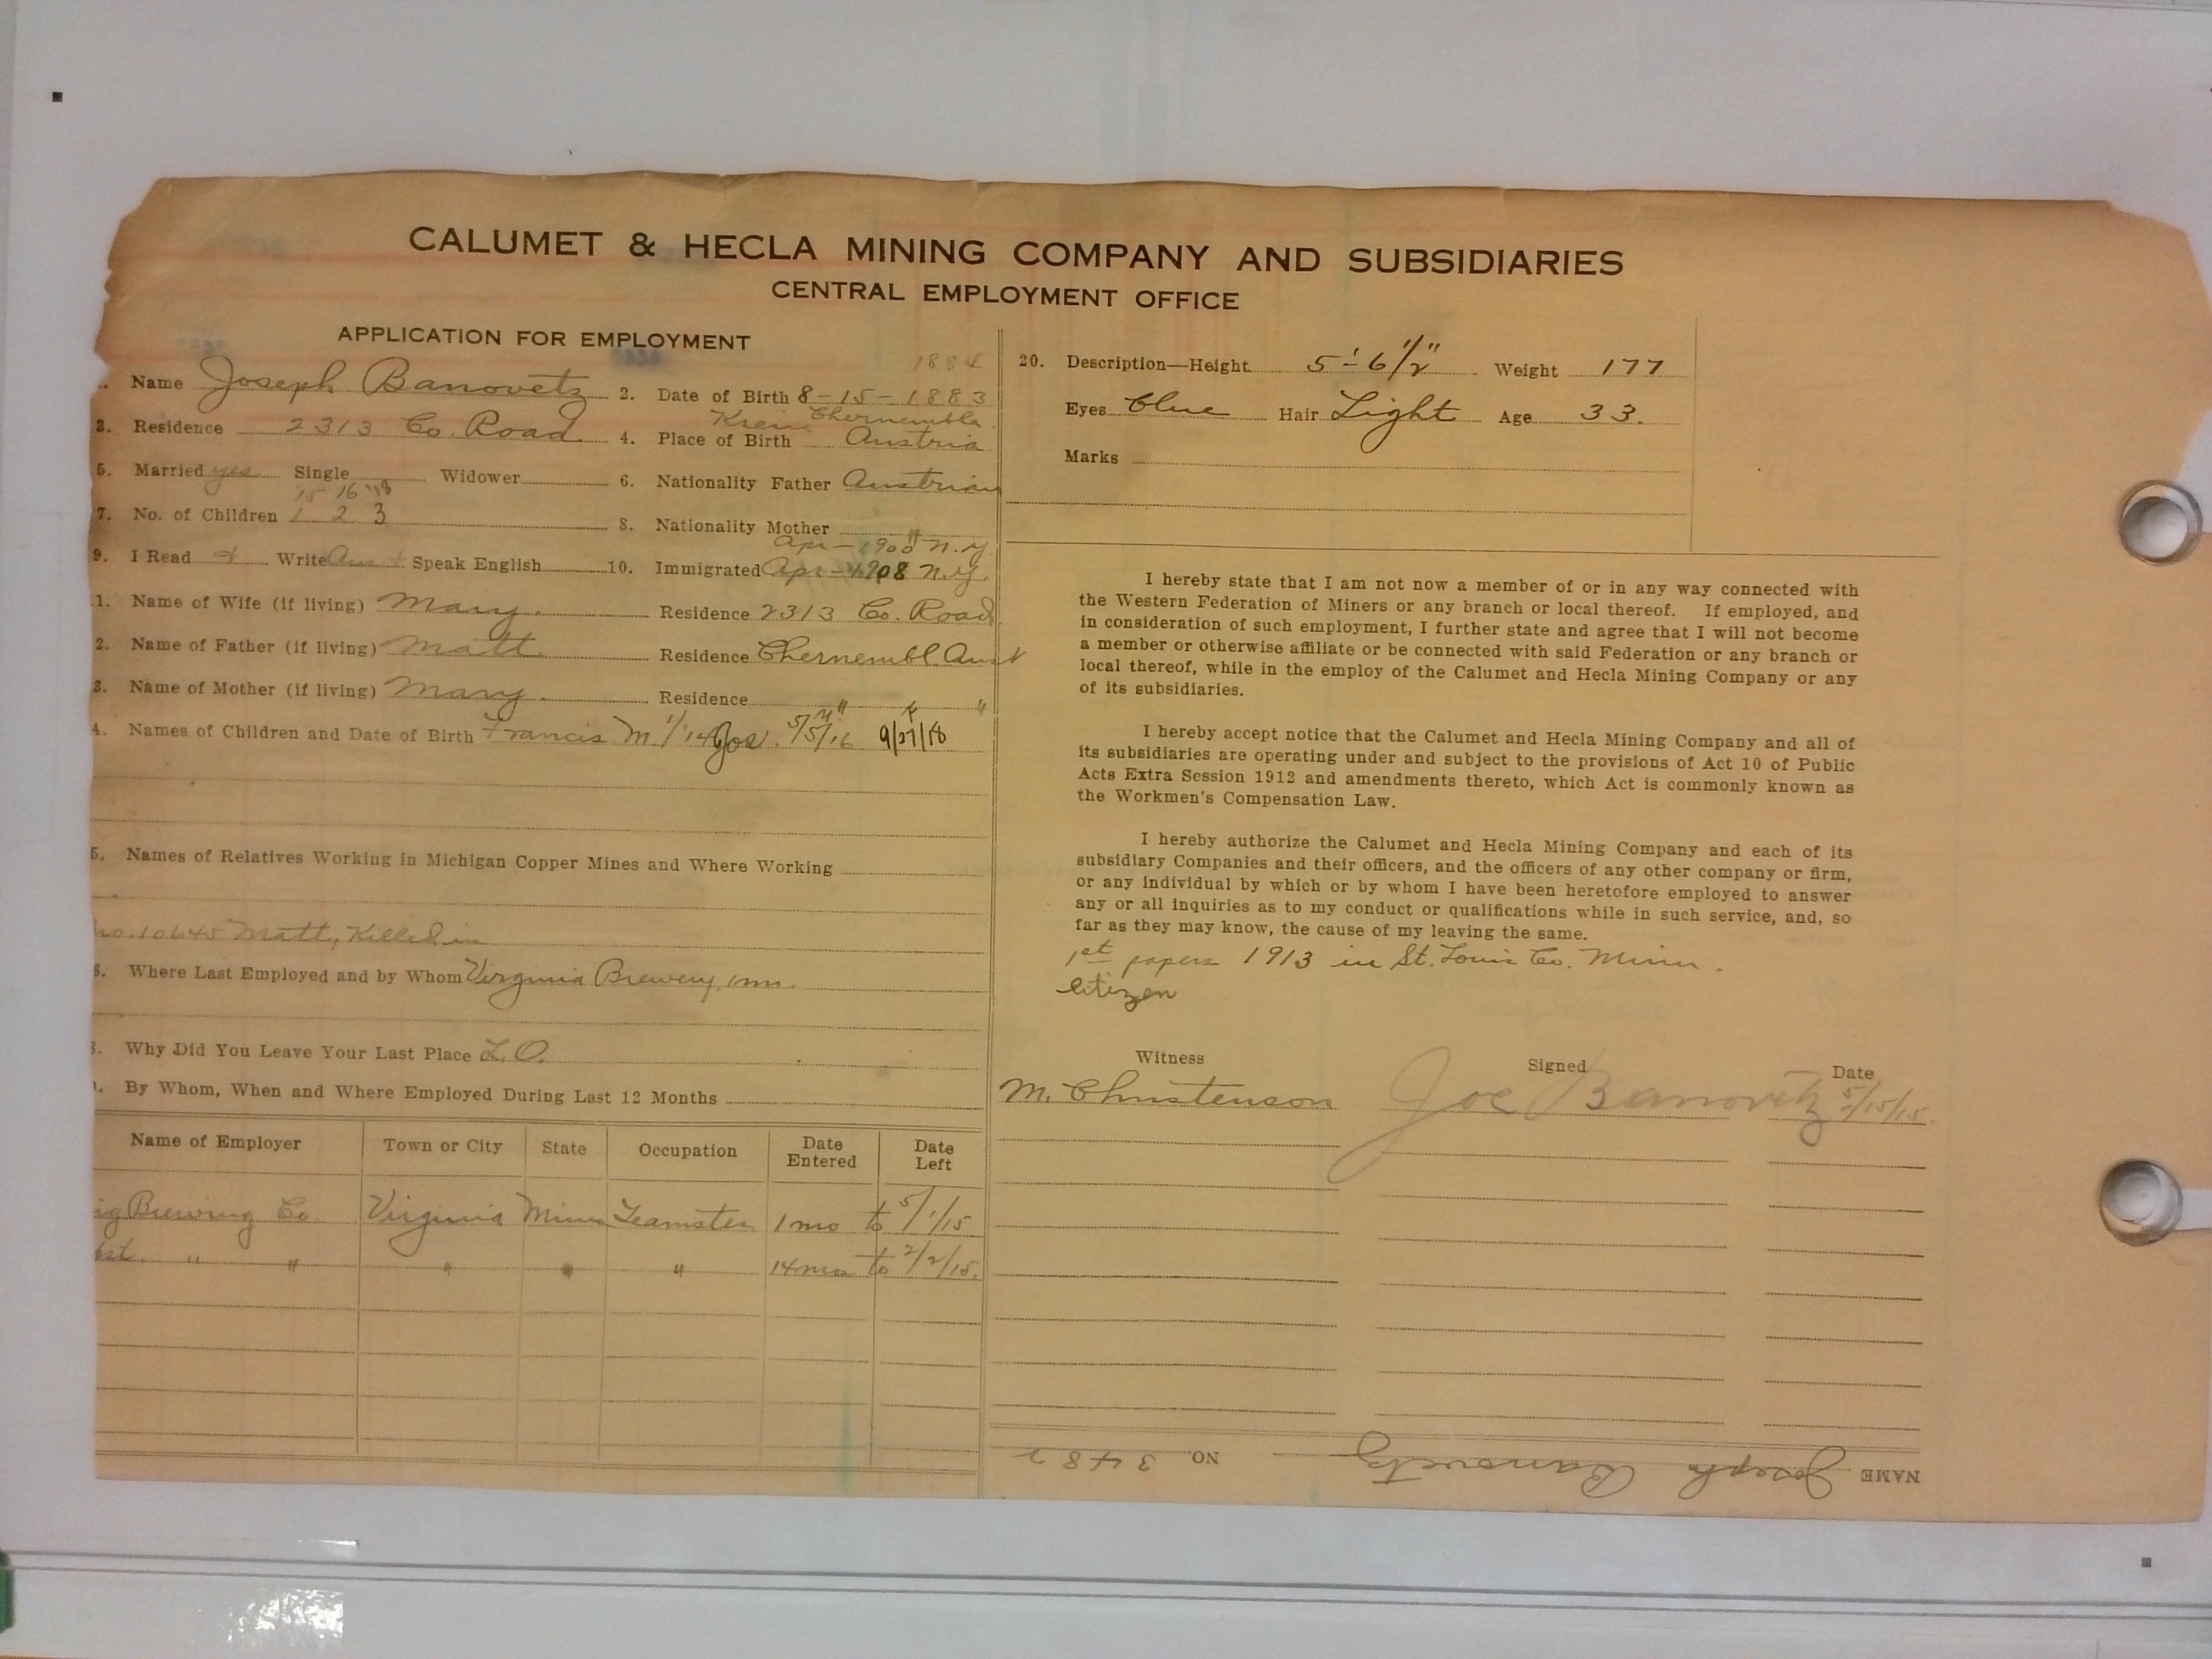 CALUMET & HECLA MINING COMPANY AND SUBSIDIARIES
CENTRAL EMPLOYMENT OFFICE
APPLICATION FOR EMPLOYMENT
1884
Name Joseph Banovetz 2. Date of Birth 8-15-1883
Krein Chernembl
3. Residence 2313 Co. Road 4. Place of Birth Austria
5. Married yes Single Widower 6. Nationality Father Austrian
'15 16 '18
7. No. of Children 1 2 3 8. Nationality Mother "
Apr-1900 N.Y.
9. I Read & Write Aus + Speak English 10. Immigrated Apr-1908 N.Y.
1. Name of Wife (if living) Mary. Residence 2313 Co. Road
2. Name of Father (if living) Matt. Residence Chernembl. Aust
3. Name of Mother (if living) Mary Residence " "
4. Names of Children and Date of Birth Francis M. Joe. 5/5/16 9/27/18
5. Names of Relatives Working in Michigan Copper Mines and Where Working
no. 10645 Matt, Killed in
6. Where Last Employed and by Whom Virginia Brewery,
8. Why Did You Leave Your Last Place L.O.
). By Whom, When and Where Employed During Last 12 Months
Name of Employer Town or City State Occupation Date Entered Date Left
ig Brewing Co Virginia Minn Teamster 1 mo to 5/1/15
bst. " " " " " 14 mos to 2/2/15.
20. Description—Height 5'-6 1/2" Weight 177
Eyes Blue Hair Light Age 33.
Marks
I hereby state that I am not now a member of or in any way connected with
the Western Federation of Miners or any branch or local thereof. If employed, and
in consideration of such employment, I further state and agree that I will not become
a member or otherwise affiliate or be connected with said Federation or any branch or
local thereof, while in the employ of the Calumet and Hecla Mining Company or any
of its subsidiaries.
I hereby accept notice that the Calumet and Hecla Mining Company and all of
its subsidiaries are operating under and subject to the provisions of Act 10 of Public
Acts Extra Session 1912 and amendments thereto, which Act is commonly known as
the Workmen's Compensation Law.
I hereby authorize the Calumet and Hecla Mining Company and each of its
subsidiary Companies and their officers, and the officers of any other company or firm,
or any individual by which or by whom I have been heretofore employed to answer
any or all inquiries as to my conduct or qualifications while in such service, and, so
far as they may know, the cause of my leaving the same.
1st papers 1913 in St. Louis Co. Minn.
Citizen
Witness Signed Date
M. Christenson Joe Banovetz 5/15/15.
NAME Joseph Banovetz NO. 3482